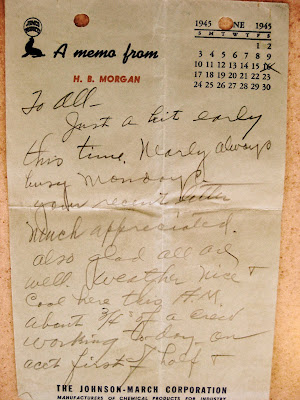 1945 NE 1945
S M T W T F S
1 2
3 4 5 6 7 8 9
10 11 12 13 14 15 16
17 18 19 20 21 22 23
24 25 26 27 28 29 30
A memo from
H. B. MORGAN
To All -
Just a bit early
this time. Nearly always
busy Mondays
your recent letter
much appreciated.
also glad all are
well. Weather nice +
Cool here this A.M.
about 3/4 of a crew
working today on
acct first of
THE JOHNSON-MARCH CORPORATION
MANUFACTURERS OF CHEMICAL PRODUCTS FOR INDUSTRY